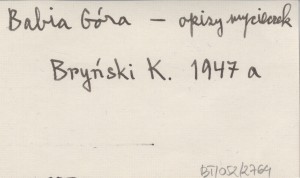 Babia Góra – opisy wycieczek
Bryński K. 1947 a
BT/052/2764